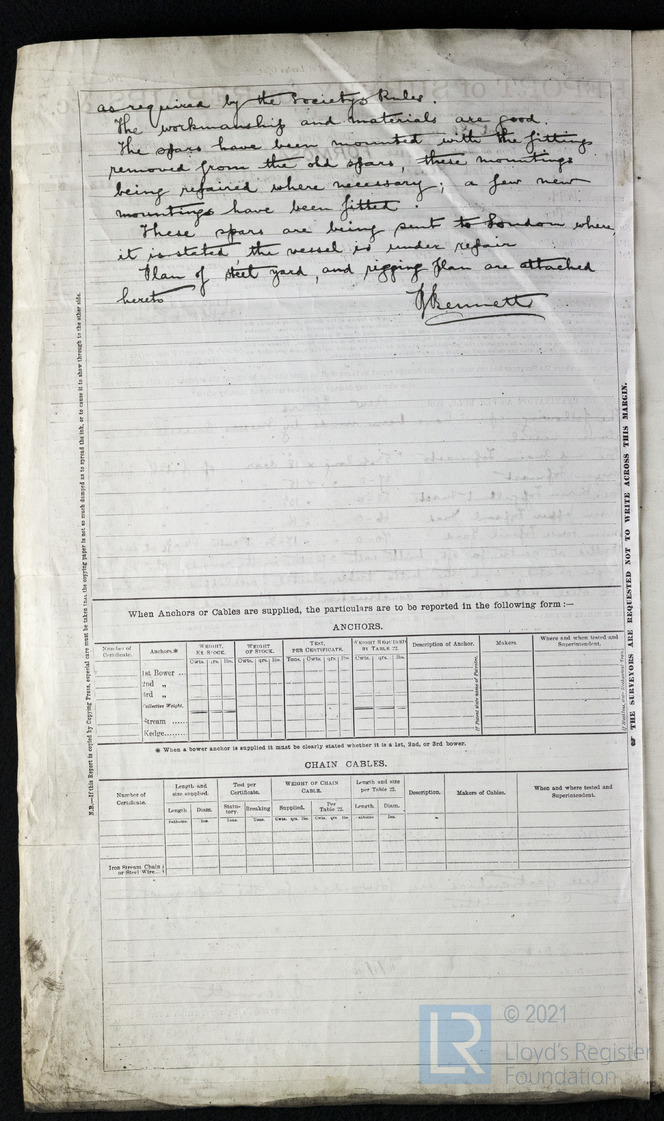 as required by the Society's Rules.
The workmanship and materials are good.
The spars have been mounted with the fittings
removed from the old spars, these mountings
being repaired where necessary; a few new
mountings have been fitted.
These spars are being sent to London where,
it is stated, the vessel is under repair
Plan of steel yard, and rigging plan are attached
hereto
Bennett
N.B.—If this Report is copied by Copying Press, especial care must be taken that the copying paper is not so much damped as to spread the ink, or to cause it to show through to the other side.
THE SURVEYORS ARE REQUESTED NOT TO WRITE ACROSS THIS MARGIN.
When Anchors or Cables are supplied, the particulars are to be reported in the following form :—
ANCHORS.
Number of Certificate. Anchors.* WEIGHT, EX STOCK. WEIGHT OF STOCK. TEST, PER CERTIFICATE. WEIGHT REQUIRED BY TABLE 22. Description of Anchor. Makers. Where and when tested and Superintendent.
Cwts. qrs. lbs. Cwts. qrs. lbs. Tons. Cwts. qrs. lbs. Cwts. qrs. lbs.
1st Bower ...
2nd „
3rd „
Collective Weight.
Stream ......
Kedge........
If Patent state name of Patentee.
* When a bower anchor is supplied it must be clearly stated whether it is a 1st, 2nd, or 3rd bower.
CHAIN CABLES.
Number of Certificate. Length and size supplied. Test per Certificate. WEIGHT OF CHAIN CABLE. Length and size per Table 22. Description. Makers of Cables. When and where tested and Superintendent.
Length Diam. Statutory. Breaking Supplied. Per Table 22. Length. Diam.
Fathoms Ins. Tons. Tons. Cwts. qrs. lbs. Cwts. qrs. lbs. Fathoms Ins.
Iron Stream Chain or Steel Wire...
LR
© 2021
Lloyd's Register
Foundation